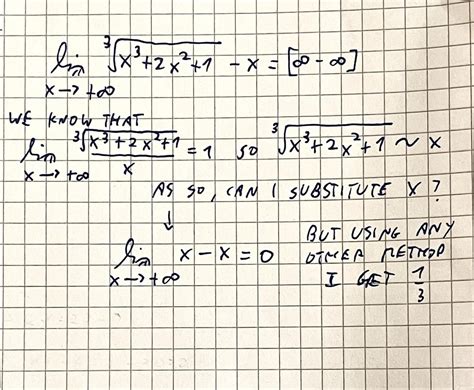 lim x→+∞ ∛(x³+2x²+1) - x = [∞-∞]
WE KNOW THAT
lim x→+∞ ∛(x³+2x²+1)/x = 1 SO ∛(x³+2x²+1) ~ x
AS SO, CAN I SUBSTITUTE X?
↓
lim x→+∞ x-x=0
BUT USING ANY
OTHER METHOD
I GET 1/3